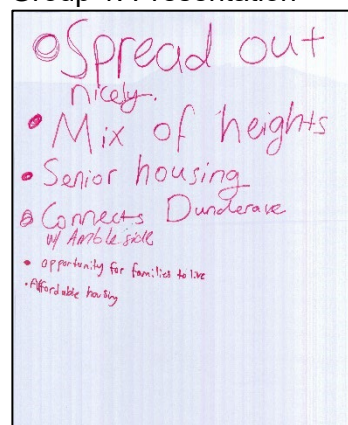 • Spread out
nicely.
• Mix of heights
• Senior housing
• Connects Dunderave
w/ Ambleside
• opportunity for families to live
• Affordable housing